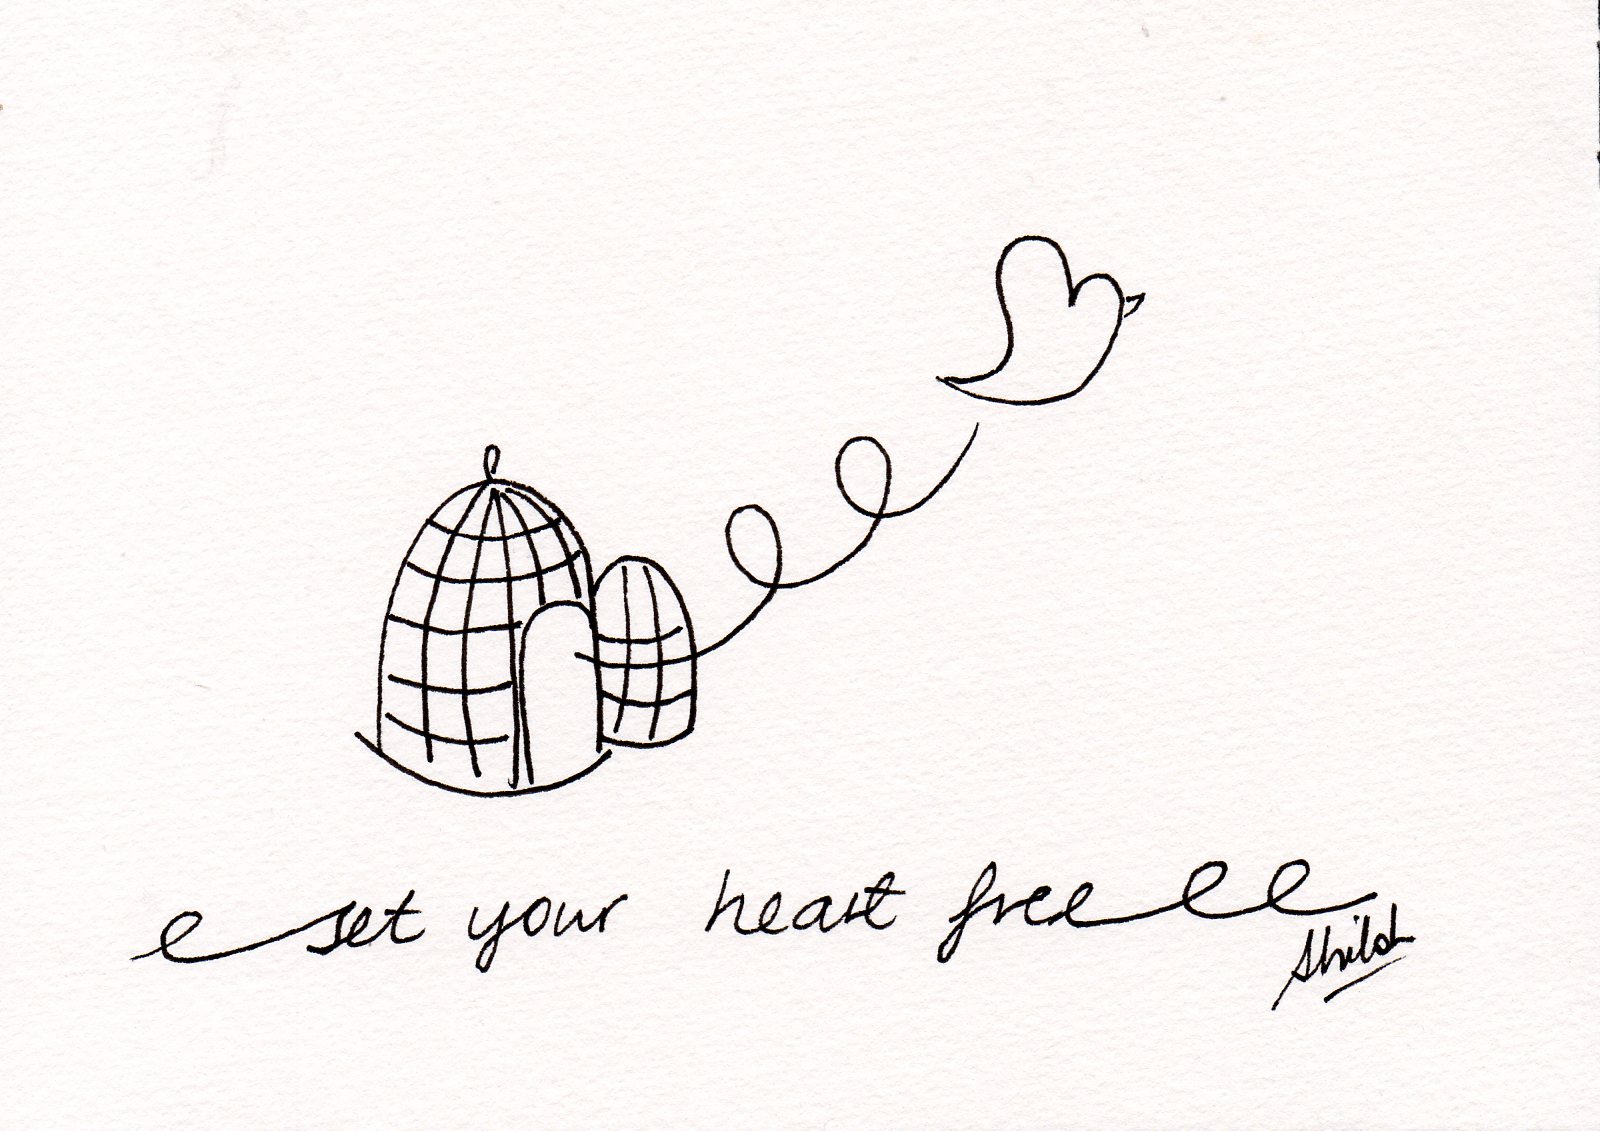 set your heart free